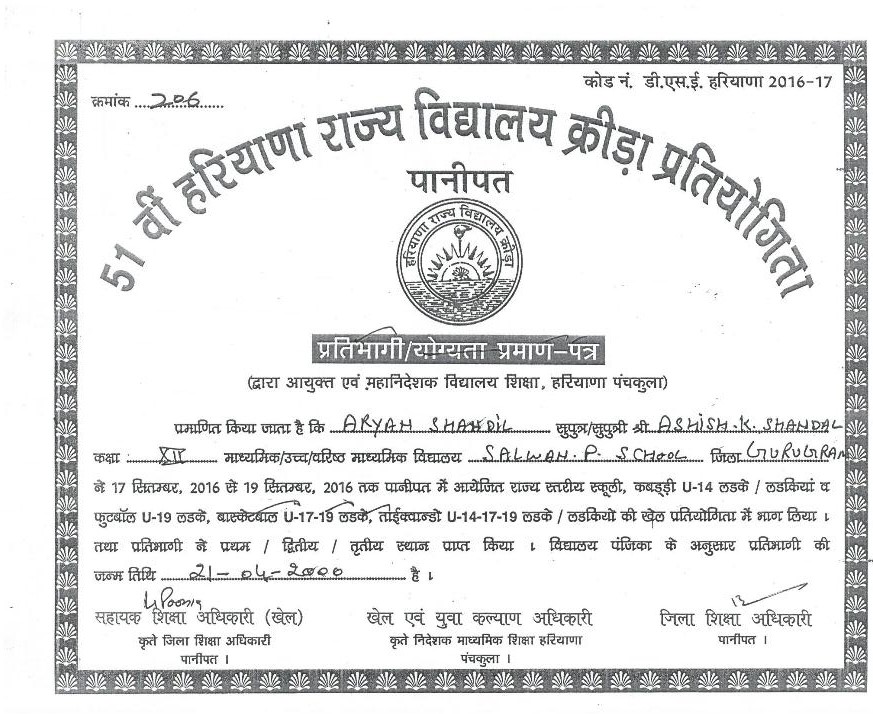 कोड नं. डी.एस.ई. हरियाणा 2016-17
क्रमांक ....206......
51 वीं हरियाणा राज्य विद्यालय क्रीड़ा प्रतियोगिता
पानीपत
हरियाणा राज्य विद्यालय क्रीड़ा
प्रतिभागी/योग्यता प्रमाण-पत्र
(द्वारा आयुक्त एवं महानिदेशक विद्यालय शिक्षा, हरियाणा पंचकुला)
प्रमाणित किया जाता है कि ..ARYAN SHANDIL...... सुपुत्र/सुपुत्री श्री ASHISH.K. SHANDAL
कक्षा :......XII........ माध्यमिक/उच्च/वरिष्ठ माध्यमिक विद्यालय ..SALWAN. P. SCHOOL.. जिला GURUGRAM
ने 17 सितम्बर, 2016 से 19 सितम्बर, 2016 तक पानीपत में आयेजित राज्य स्तरीय स्कूली, कबड्डी U-14 लडके / लडकियां व
फुटबॉल U-19 लडके, बास्केटबाल U-17-19 लडके, ताईक्वान्डो U-14-17-19 लडके / लडकियो की खेल प्रतियोगिता में भाग लिया ।
तथा प्रतिभागी ने प्रथम / द्वितीय / तृतीय स्थान प्राप्त किया । विद्यालय पंजिका के अनुसार प्रतिभागी की
जन्म तिथि ......21-04-2000............ है ।
सहायक शिक्षा अधिकारी (खेल) खेल एवं युवा कल्याण अधिकारी जिला शिक्षा अधिकारी
कृते जिला शिक्षा अधिकारी कृते निदेशक माध्यमिक शिक्षा हरियाणा पानीपत ।
पानीपत । पंचकुला ।